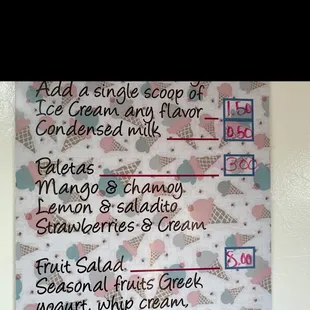 Add a single scoop of
Ice Cream any flavor _ 1.50
Condensed milk ____ 0.50
Paletas ____________ 3.00
Mango & chamoy
Lemon & saladito
Strawberries & Cream
Fruit Salad _________ 8.00
Seasonal fruits Greek
yogurt, whip cream,